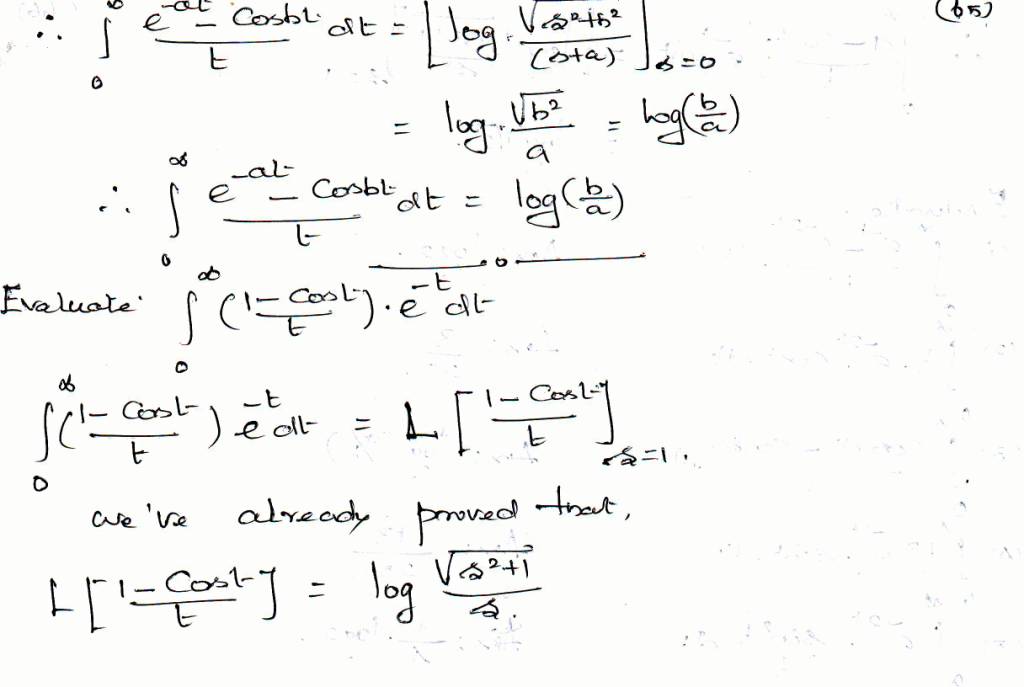 ∴ ∫₀^∞ (e^(-at) - Cosbt)/t dt = [log √(s²+b²)/(s+a)]_(s=0) (65)
= log √b²/a = log(b/a)
∴ ∫₀^∞ (e^(-at) - Cosbt)/t dt = log(b/a)
Evaluate ∫₀^∞ ((1 - Cost)/t).e^(-t) dt
∫₀^∞ ((1 - Cost)/t) e^(-t) dt = L[(1 - Cost)/t]_(s=1).
we've already proved that,
L[(1 - Cost)/t] = log √(s²+1)/s.